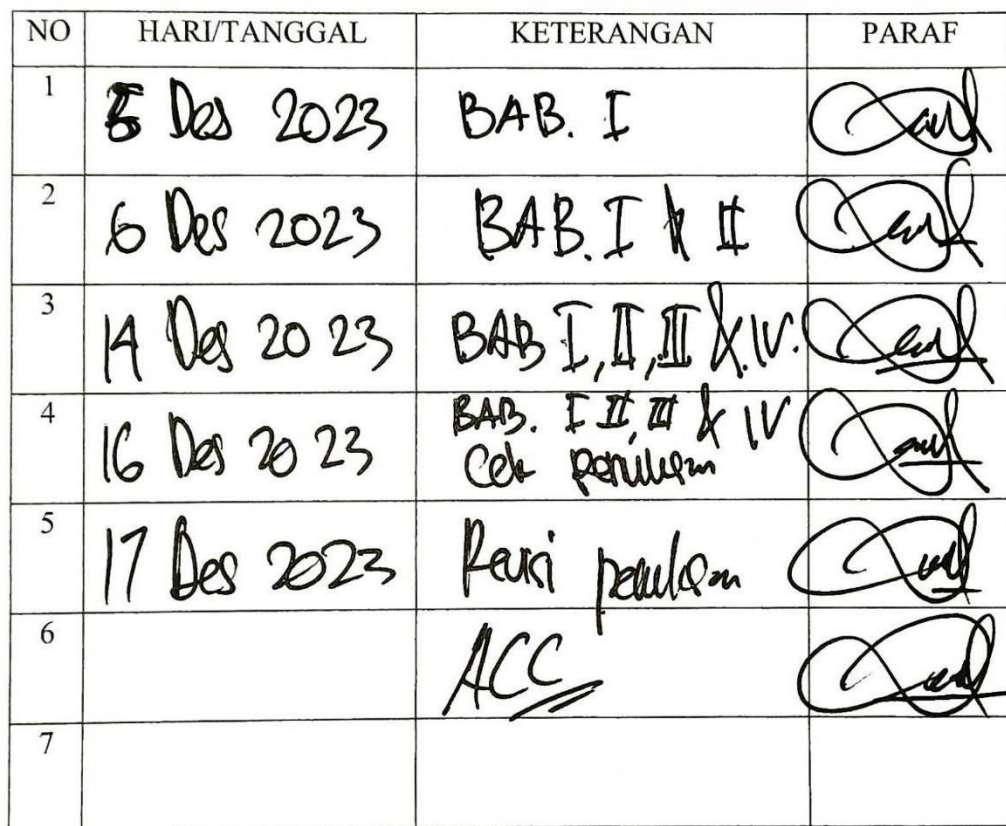 NO HARI/TANGGAL KETERANGAN PARAF
1 5 Des 2023 BAB. I
2 6 Des 2023 BAB. I & II
3 14 Des 2023 BAB I, II, III & IV.
4 16 Des 2023 BAB. I II, III & IV
Cek penulisan
5 17 Des 2023 Revisi penulisan
6 ACC
7